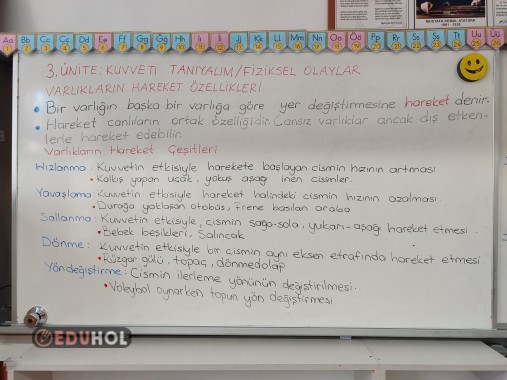 Aa Bb Cc Çç Dd Ee Ff Gg Ğğ Hh Iı İi Jj Kk Ll Mm Nn Oo Öö Pp Rr Ss Şş Tt Uu Üü
3. ÜNİTE: KUVVETİ TANIYALIM/FİZİKSEL OLAYLAR
VARLIKLARIN HAREKET ÖZELLİKLERİ
• Bir varlığın başka bir varlığa göre yer değiştirmesine hareket denir.
• Hareket canlıların ortak özelliğidir. Cansız varlıklar ancak dış etken-
lerle hareket edebilir.
Varlıkların Hareket Çeşitleri
Hızlanma: Kuvvetin etkisiyle harekete başlayan cismin hızının artması
• Kalkış yapan uçak, yokuş aşağı inen cisimler.
Yavaşlama: Kuvvetin etkisiyle hareket halindeki cismin hızının azalması.
• Durağa yaklaşan otobüs, frene basılan araba
Sallanma: Kuvvetin etkisiyle, cismin sağa-sola, yukarı-aşağı hareket etmesi.
• Bebek beşikleri, Salıncak
Dönme: Kuvvetin etkisiyle bir cismin aynı eksen etrafında hareket etmesi
• Rüzgar gülü, topaç, dönmedolap
Yön değiştirme: Cismin ilerleme yönünün değiştirilmesi.
• Voleybol oynarken topun yön değiştirmesi
EDUHOL